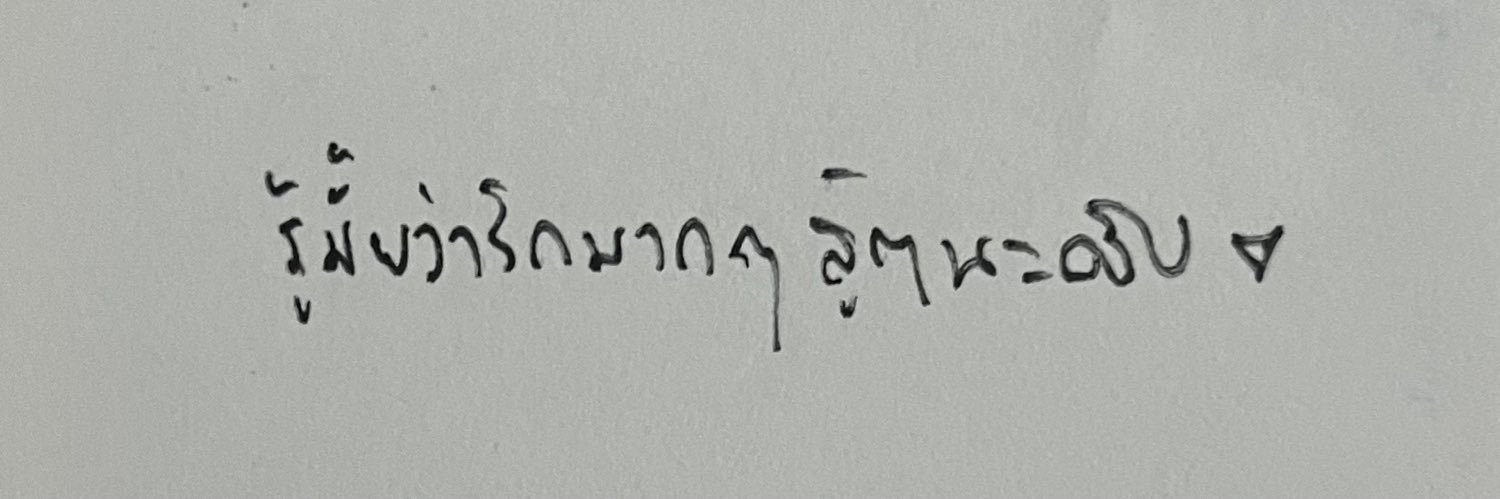 รู้มั้ยว่ารักมากๆ สู้ๆนะครับ ♥